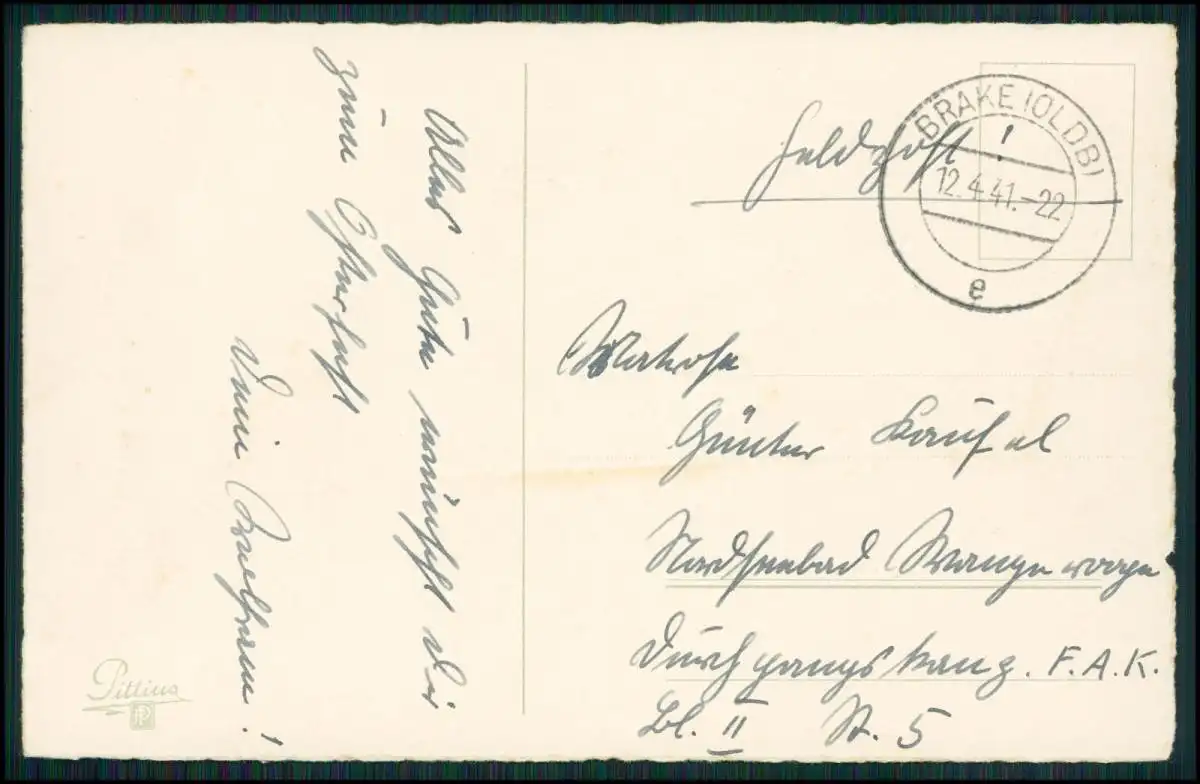 Alles Gute wünscht Dir
zum Osterfest
Deine
!
Pittius
Feldpost!
BRAKE (OLDB)
12.4.41.-22
e
Matrose
Günter
Nordseebad Wangerooge
Durchgangskomp. F.A.K.
Bl. II St. 5